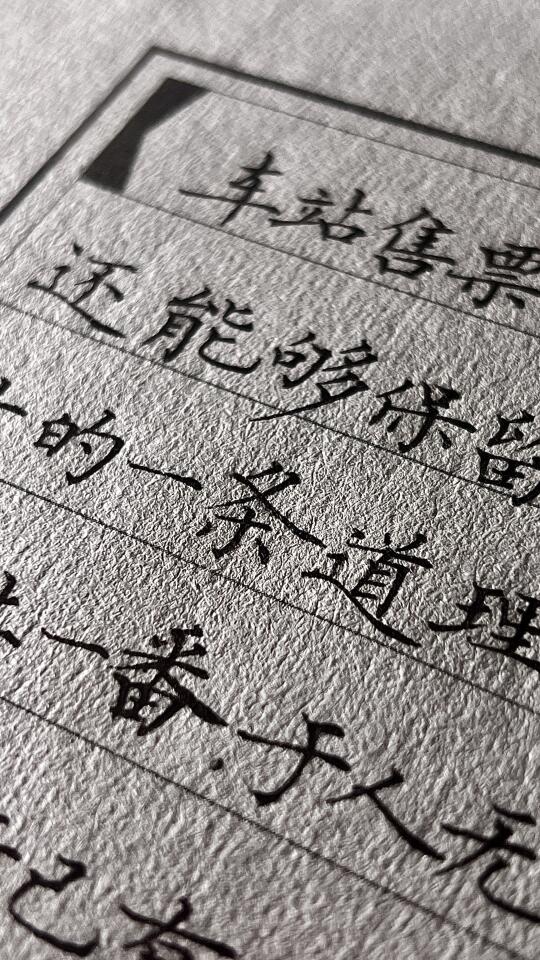 车站售票
还能够保留
的一条道理
一番.于人无
己有